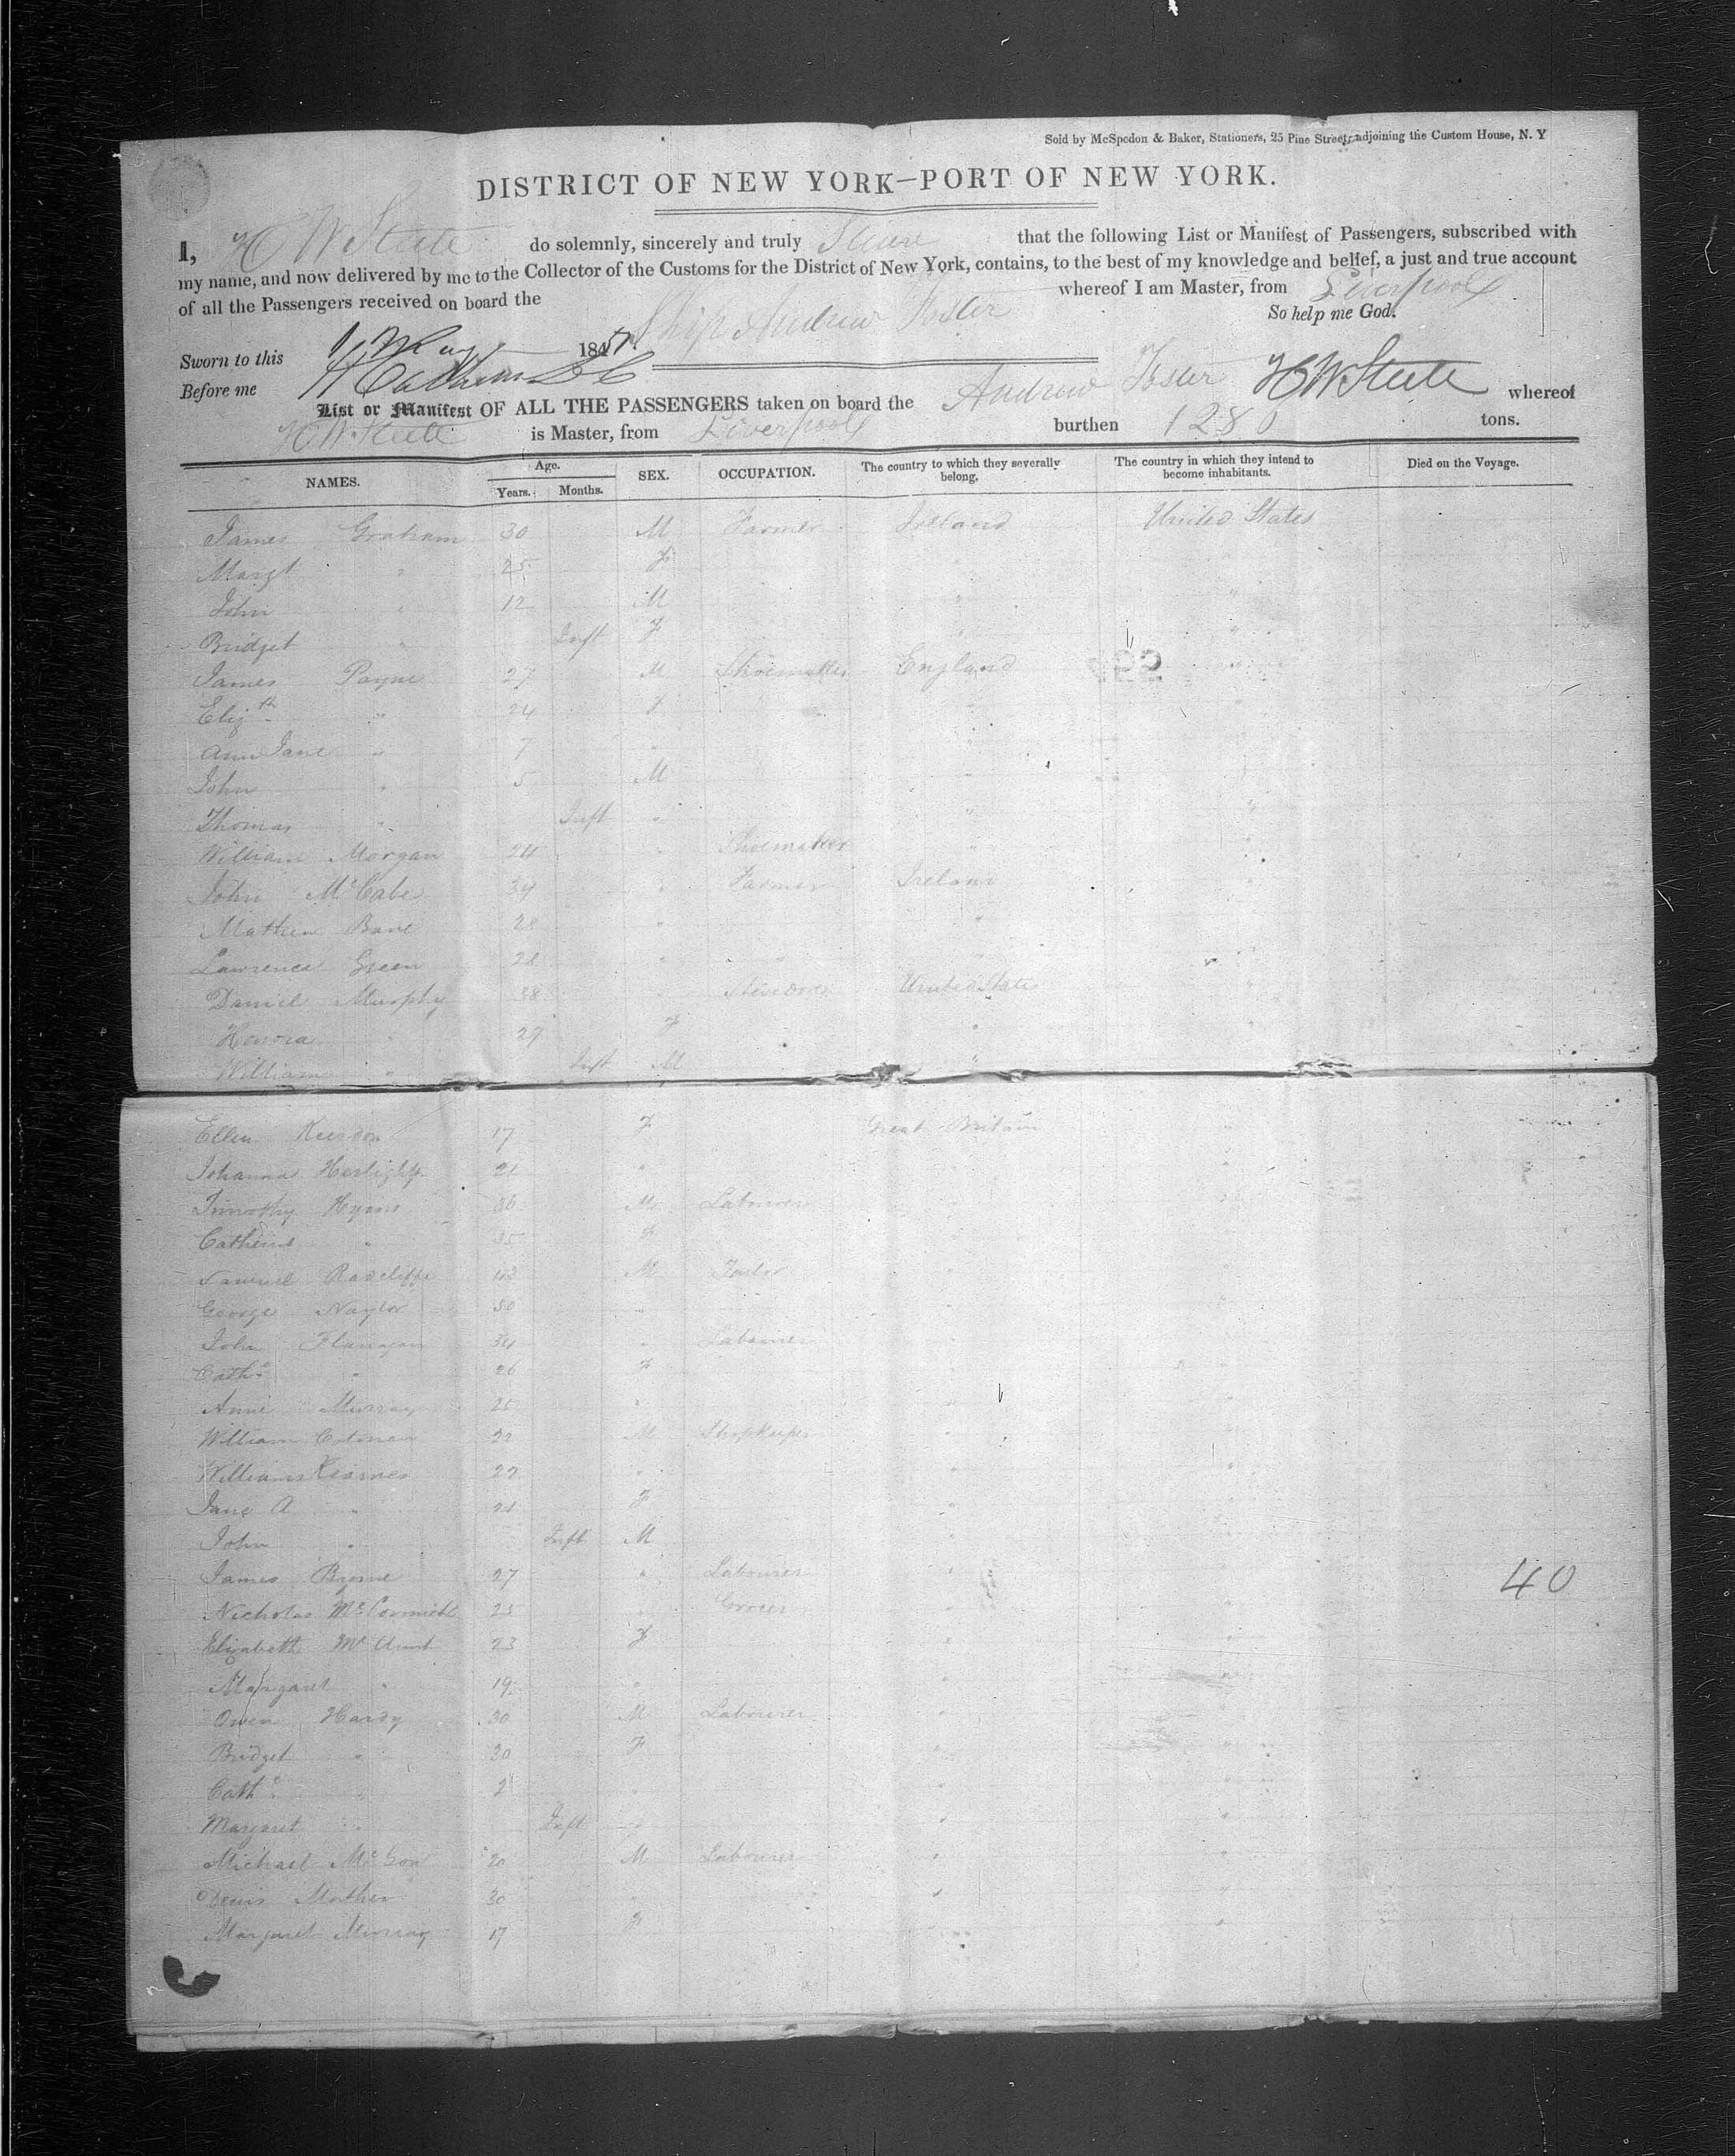 Sold by McSpedon & Baker, Stationers, 25 Pine Street, adjoining the Custom House, N. Y
DISTRICT OF NEW YORK—PORT OF NEW YORK.
I, H W Steele do solemnly, sincerely and truly Swear that the following List or Manifest of Passengers, subscribed with
my name, and now delivered by me to the Collector of the Customs for the District of New York, contains, to the best of my knowledge and belief, a just and true account
of all the Passengers received on board the Ship Andrew Foster whereof I am Master, from Liverpool
So help me God.
Sworn to this May 1857
Before me
H W Steele
List or Manifest OF ALL THE PASSENGERS taken on board the Andrew Foster whereof
H W Steele is Master, from Liverpool burthen 1280 tons.
NAMES. Age. Years. Months. SEX. OCCUPATION. The country to which they severally belong. The country in which they intend to become inhabitants. Died on the Voyage.
James Graham 30 M Farmer Ireland United States
Margt " 25 F
John " 12 M " "
Bridget " Inft F " "
James Payne 27 M Shoemaker England "
Elizth " 24 F " "
Ann Jane " 7 " "
John " 5 M "
Thomas " Inft " " "
William Morgan 24 " Shoemaker " "
John McCabe 34 " Farmer Ireland "
Mathew Bane 28 " "
Lawrence Green 28 " " "
Daniel Murphy 38 Stevedore United States "
Honora " 27 F " "
William " Inft M "
Ellen 17 F Great Britain "
Johanna 21 " "
Timothy Hyans 36 M Labourer "
Catherine " 35 F
Samuel Radcliffe M Tailor "
George Naylor 50 " "
John Flanagan 34 " Labourer
Cathe " 26 F "
Anne Murray 25 " " "
William 32 M Shopkeeper " "
Williams Kearnes 27 " " "
Jane A " 24 F " "
John " Inft M "
James Byrne 27 " Labourer " "
40
Nicholas McCormick 25 Grocer " "
Elizabeth 23 F " "
Margaret " 19 " " "
Owen Hardy 30 M Labourer " "
Bridget " 30 F " "
Cathe " 2 " " "
Margaret " Inft " " "
Michael 20 M Labourer " "
Denis Mather 30 " " "
Margaret Murray 17 F "